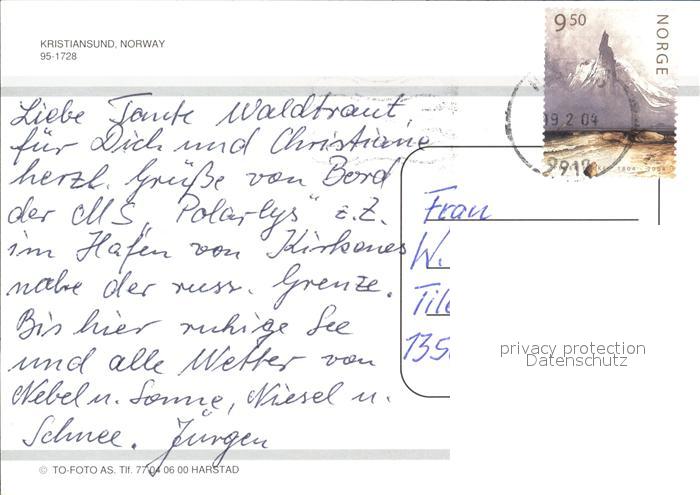 KRISTIANSUND, NORWAY
95-1728
Liebe Tante Waldtraut,
für Dich und Christiane
herzl. Grüße von Bord
der MS „Polarlys" z.Z.
im Hafen von Kirkenes
nahe der russ. Grenze.
Bis hier ruhige See
und alle Wetter von
Nebel u. Sonne, Niesel u.
Schnee. Jürgen
© TO-FOTO AS. Tlf. 77 04 06 00 HARSTAD
9 50
NORGE
1804 - 2004
19.2.04
9912
Frau
W.
Tile
135
privacy protection
Datenschutz